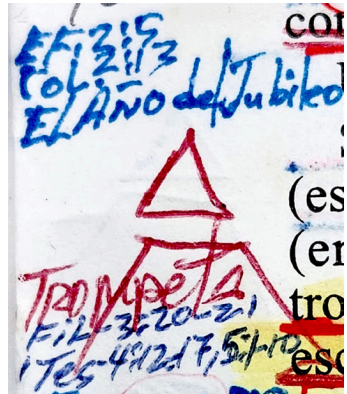 EF:2:5
COL:2:13
EL AÑO del Jubileo
Trompeta
FiL-3:20-21
1 Tes-4:12:17,5:1-10
con
(es
(en
tro
esc